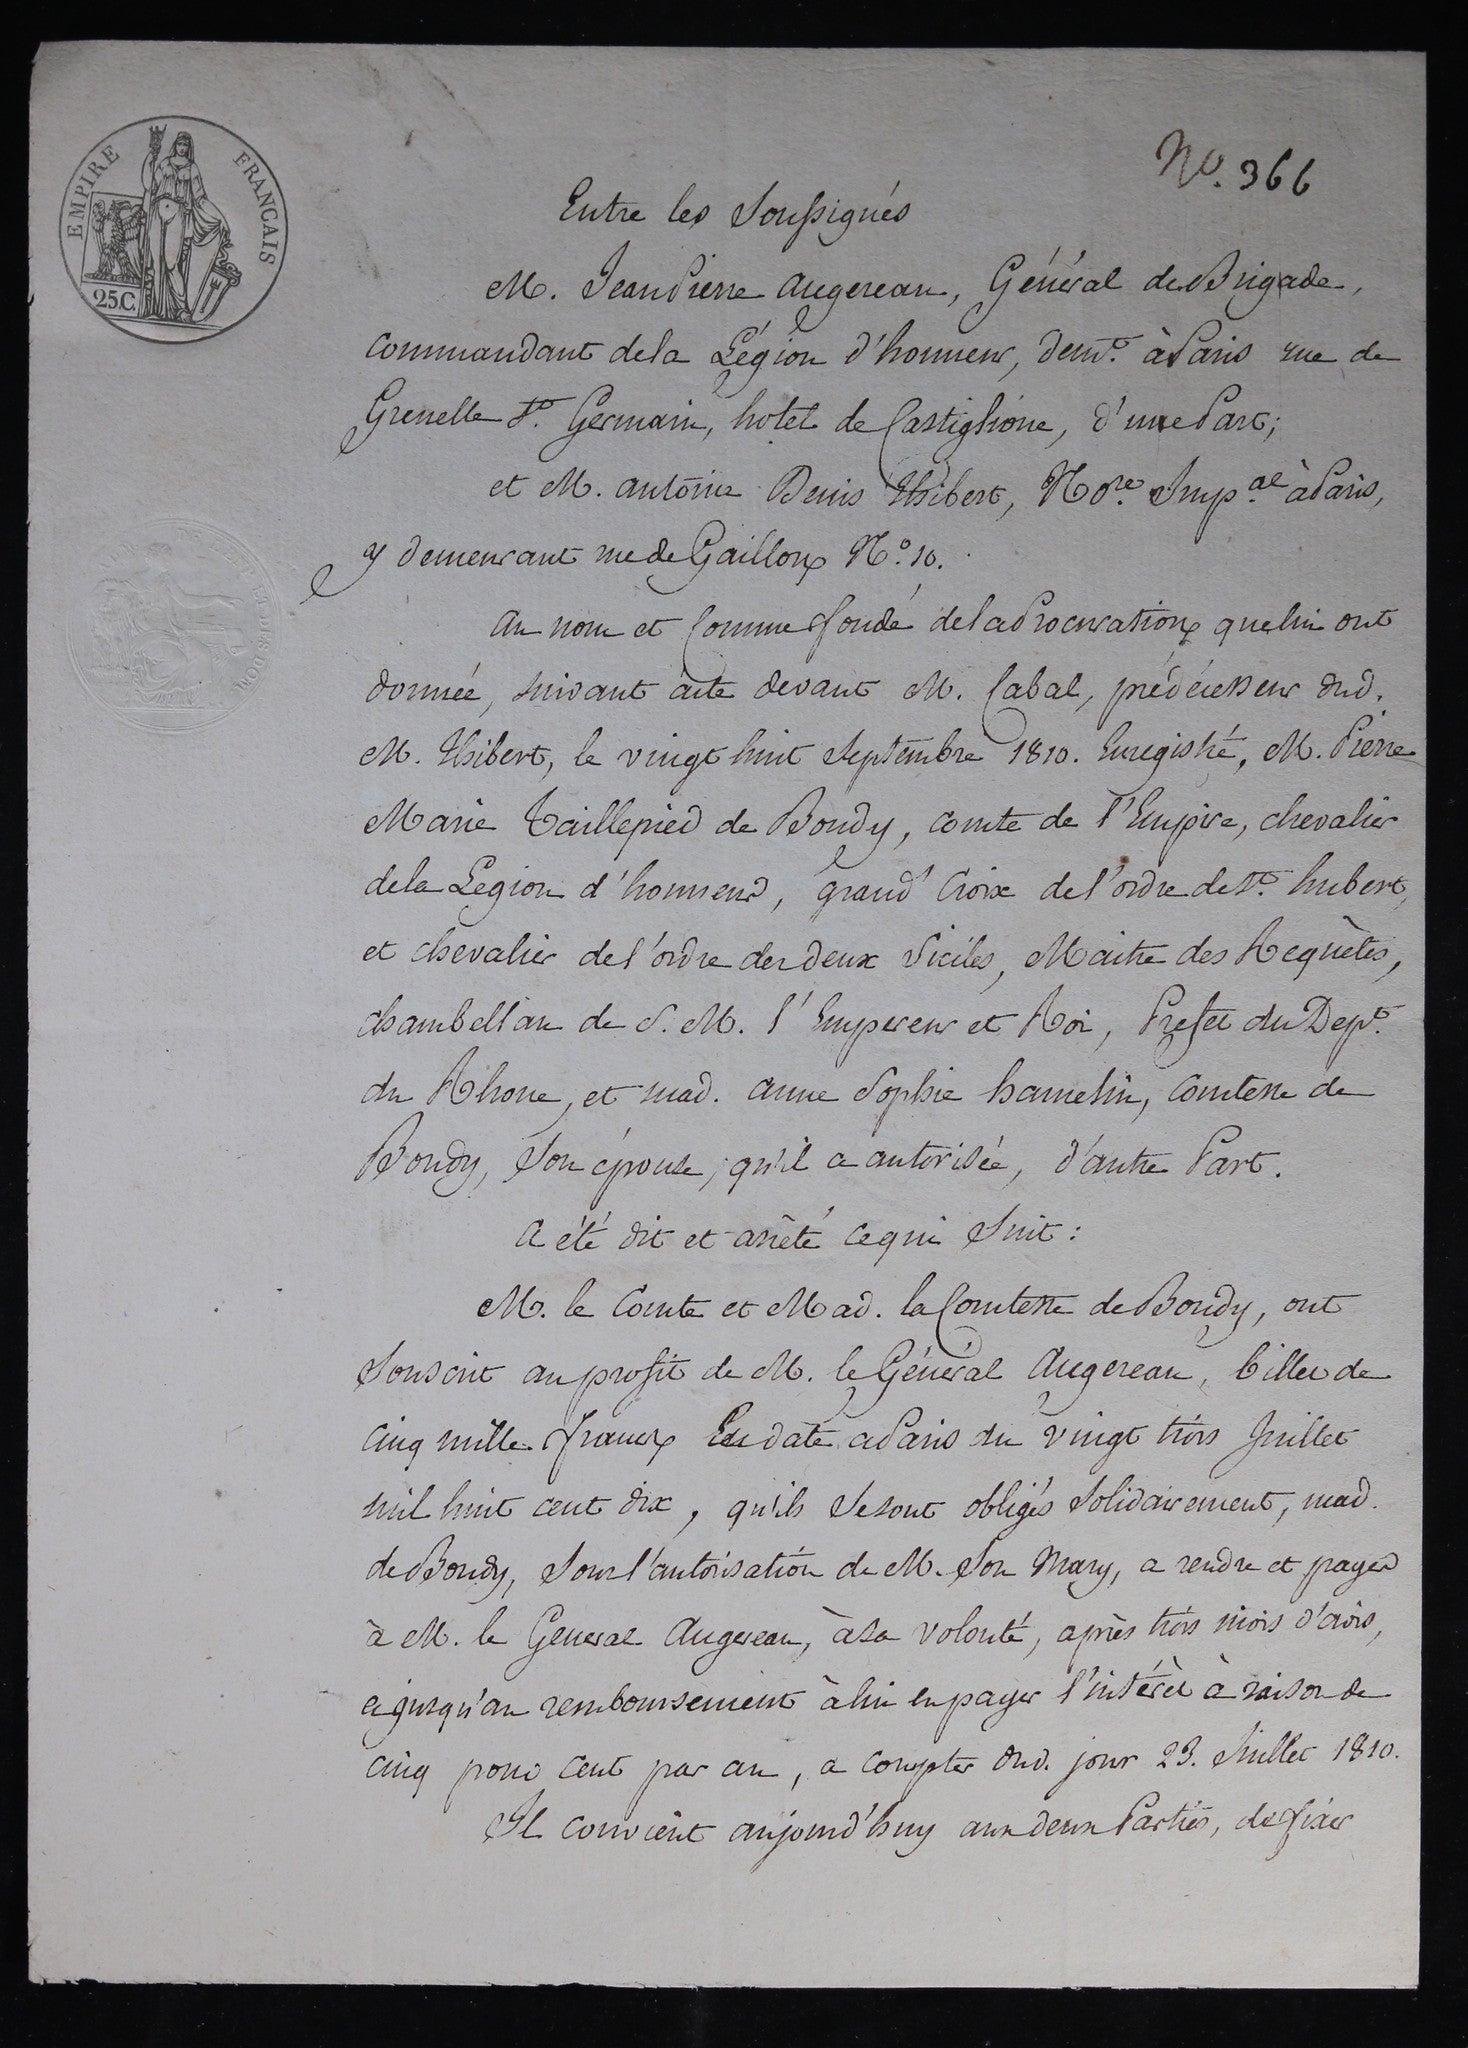 EMPIRE FRANCAIS
25C.
No. 366
Entre les Soussignés
M. Jean Pierre Augereau, Général de Brigade,
commandant de la Légion d'honneur, demt. à Paris rue de
Grenelle St. Germain, hotel de Castiglione, d'une Part;
et M. antoine Denis Thibert, Nore. Impal. à Paris,
y demeurant rue de Gaillon No. 10.
au nom et Comme fondé de la Procuration que lui ont
donnée, suivant acte devant M. Cabal, prédécesseur dud.
M. Thibert, le vingt huit Septembre 1810. Enregistré, M. Pierre
Marie Taillepied de Bondy, comte de l'Empire, chevalier
de la Légion d'honneur, grand' Croix de l'ordre de St. hubert,
et chevalier de l'ordre des deux Siciles, Maitre des Requètes,
chambellan de S. M. l'Empereur et Roi, Prefet du Dept.
du Rhone, et mad. anne Sophie hamelin, Comtesse de
Bondy, Son épouse, qu'il a autorisée, d'autre Part.
a été dit et arrêté ce qui Suit:
M. le Comte et Mad. la Comtesse de Bondy, ont
Souscrit au profit de M. le Général Augereau, billet de
cinq mille francs En date a Paris du vingt trois Juillet
mil huit cent dix, qu'ils Se sont obligés Solidairement, mad.
de Bondy, Sous l'autorisation de M. Son Mary, a rendre et payer
à M. le General Augereau, à sa volonté, après trois mois d'avis,
et jusqu'au remboursement à lui en payer l'intérêt à raison de
cinq pour cent par an, a compter dud. jour 23. Juillet 1810.
Il convient aujourd'huy aux deux Parties, de fixer